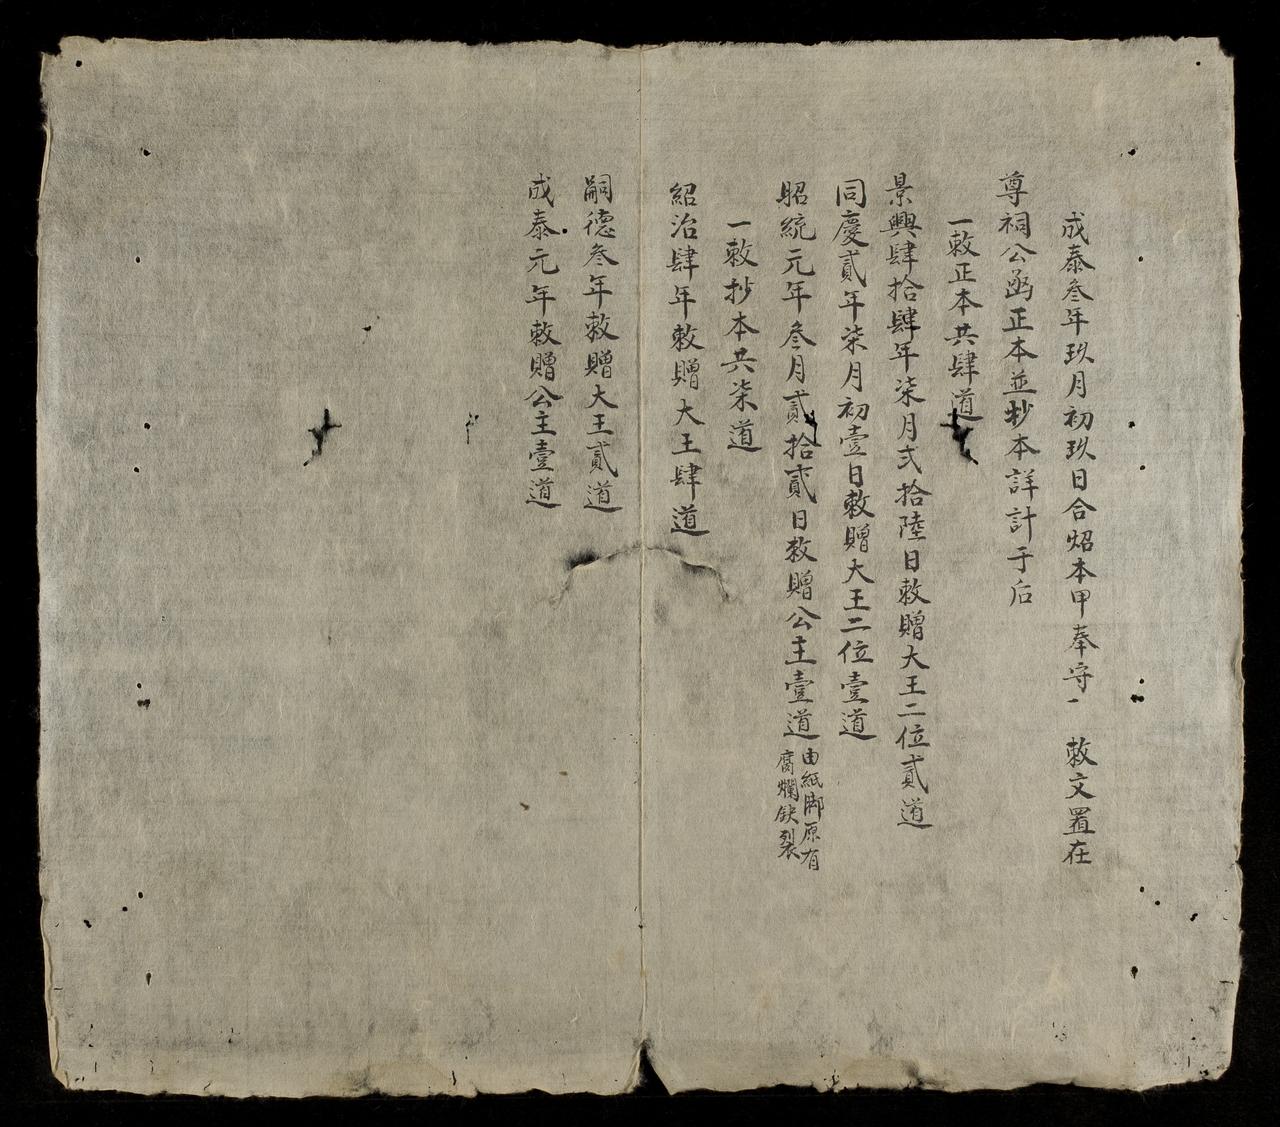 成泰叁年玖月初玖日合炤本甲奉守一敕文置在
尊祠公函正本並抄本詳計于后
一敕正本共肆道
景興肆拾肆年柒月弍拾陸日敕贈大王二位貳道
同慶貳年柒月初壹日敕贈大王二位壹道
昭統元年叁月貳拾貳日敕贈公主壹道由紙脚原有
腐爛缺裂
一敕抄本共柒道
紹治肆年敕贈大王肆道
嗣德叁年敕贈大王貳道
成泰元年敕贈公主壹道